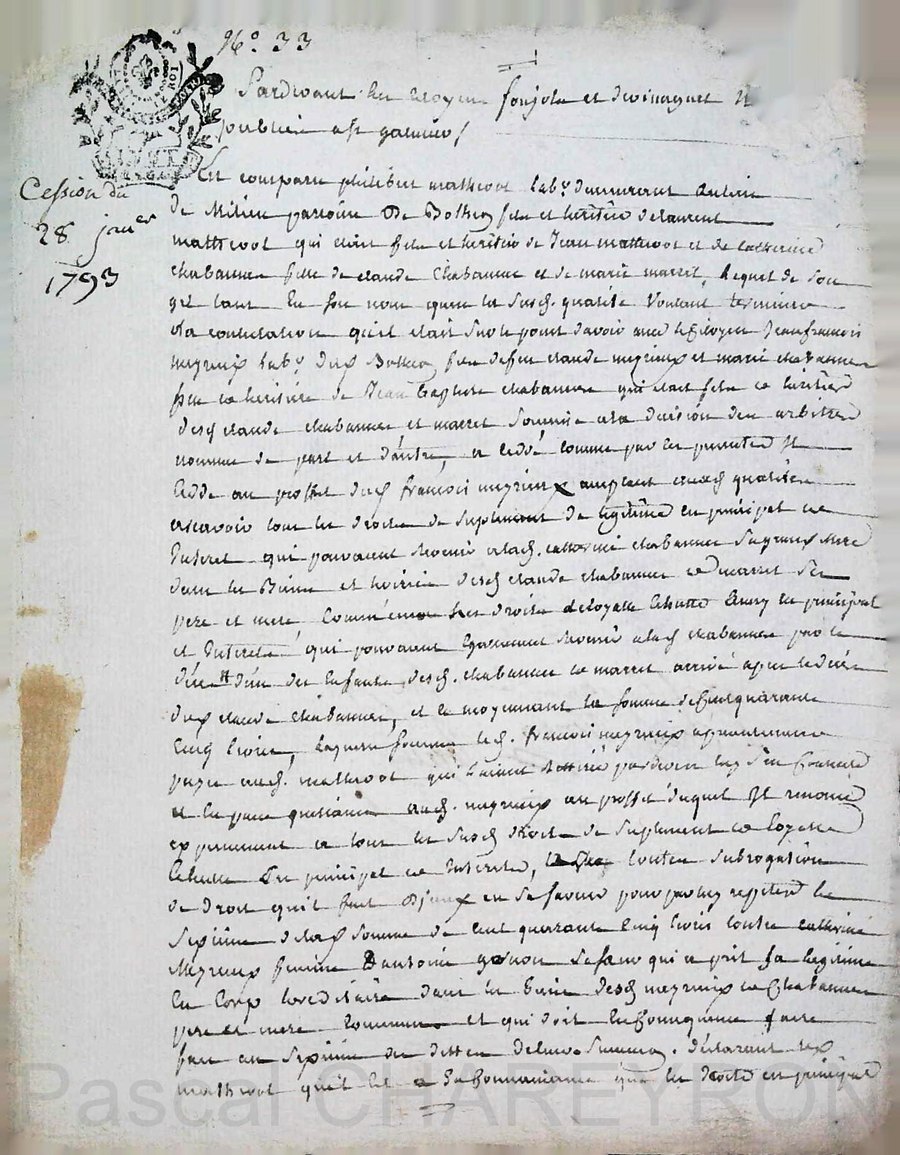 N.º 33
Pardevant les citoyens foujols et devinaguet N
publics ast garnier /
Cession du
28 janer
1793
Est comparu philibert mathevot lab.r demeurant au lieu
de Milieu paroisse De Bothey fils et heritier de laurent
mathevot qui etoit fils et heritier de Jean mathevot et de catherine
chabannes fille de claude Chabannes et de marie marret, lequel de son
gré tant en son nom quen la susd. qualité voulant terminer
la contestation qu'il etait sur le point davoir avec le citoyen Jean francois
meyrieux lab.r dud Bothey fils de feu claude meyrieux et marie chabannes
fille et heritiere de Jean Baptiste chabannes qui etait fils et heritier
desd claude chabannes et marret soumise a la decision des arbitres
nommés de part et d'autre, a cedé comme par les presentes Il
Cedde au proffit dud francois meyrieux acceptant esdes qualités
ascavoir tous les droits de suplement de legitime en principal et
Interet qui pouvaient revenir a lad. catherine chabannes sa mere
dans les Biens et hoirie desd claude chabannes et marret ses
pere et mere comme encore les droits echus en principal
et Interets qui pouvaient egalement revenir a lad chabannes par le
décès d'un des enfants desd. chabannes et marret arrivé apres le décès
dud claude Chabannes, et ce moyennant la somme de cent quarante
Cinq livres, laquelle somme led. francois meyrieux a presentement
payée aud. mathevot qui l'aiant retirée par devers luy s'en contente
et en passe quittance aud. meyrieux au proffit duquel Il renonce
expressement a tous les susd droits de suplement et
echutte en principal et Interets, toutes subrogation
de droit quil fait en sa faveur pour par luy repeter le
septieme de lad somme de cent quarante cinq livres contre catherine
Meyrieux femme D'antoine qui a prit sa legitime
En Corp hereditaire dans les Biens desd meyrieux et Chabannes
pere et mere communs et qui doit En consequence faire
face au septieme des dettes de leur succession. declarant led
mathevot qu'il est a sa connaissance que les droits en principal
Pascal CHAREYRON